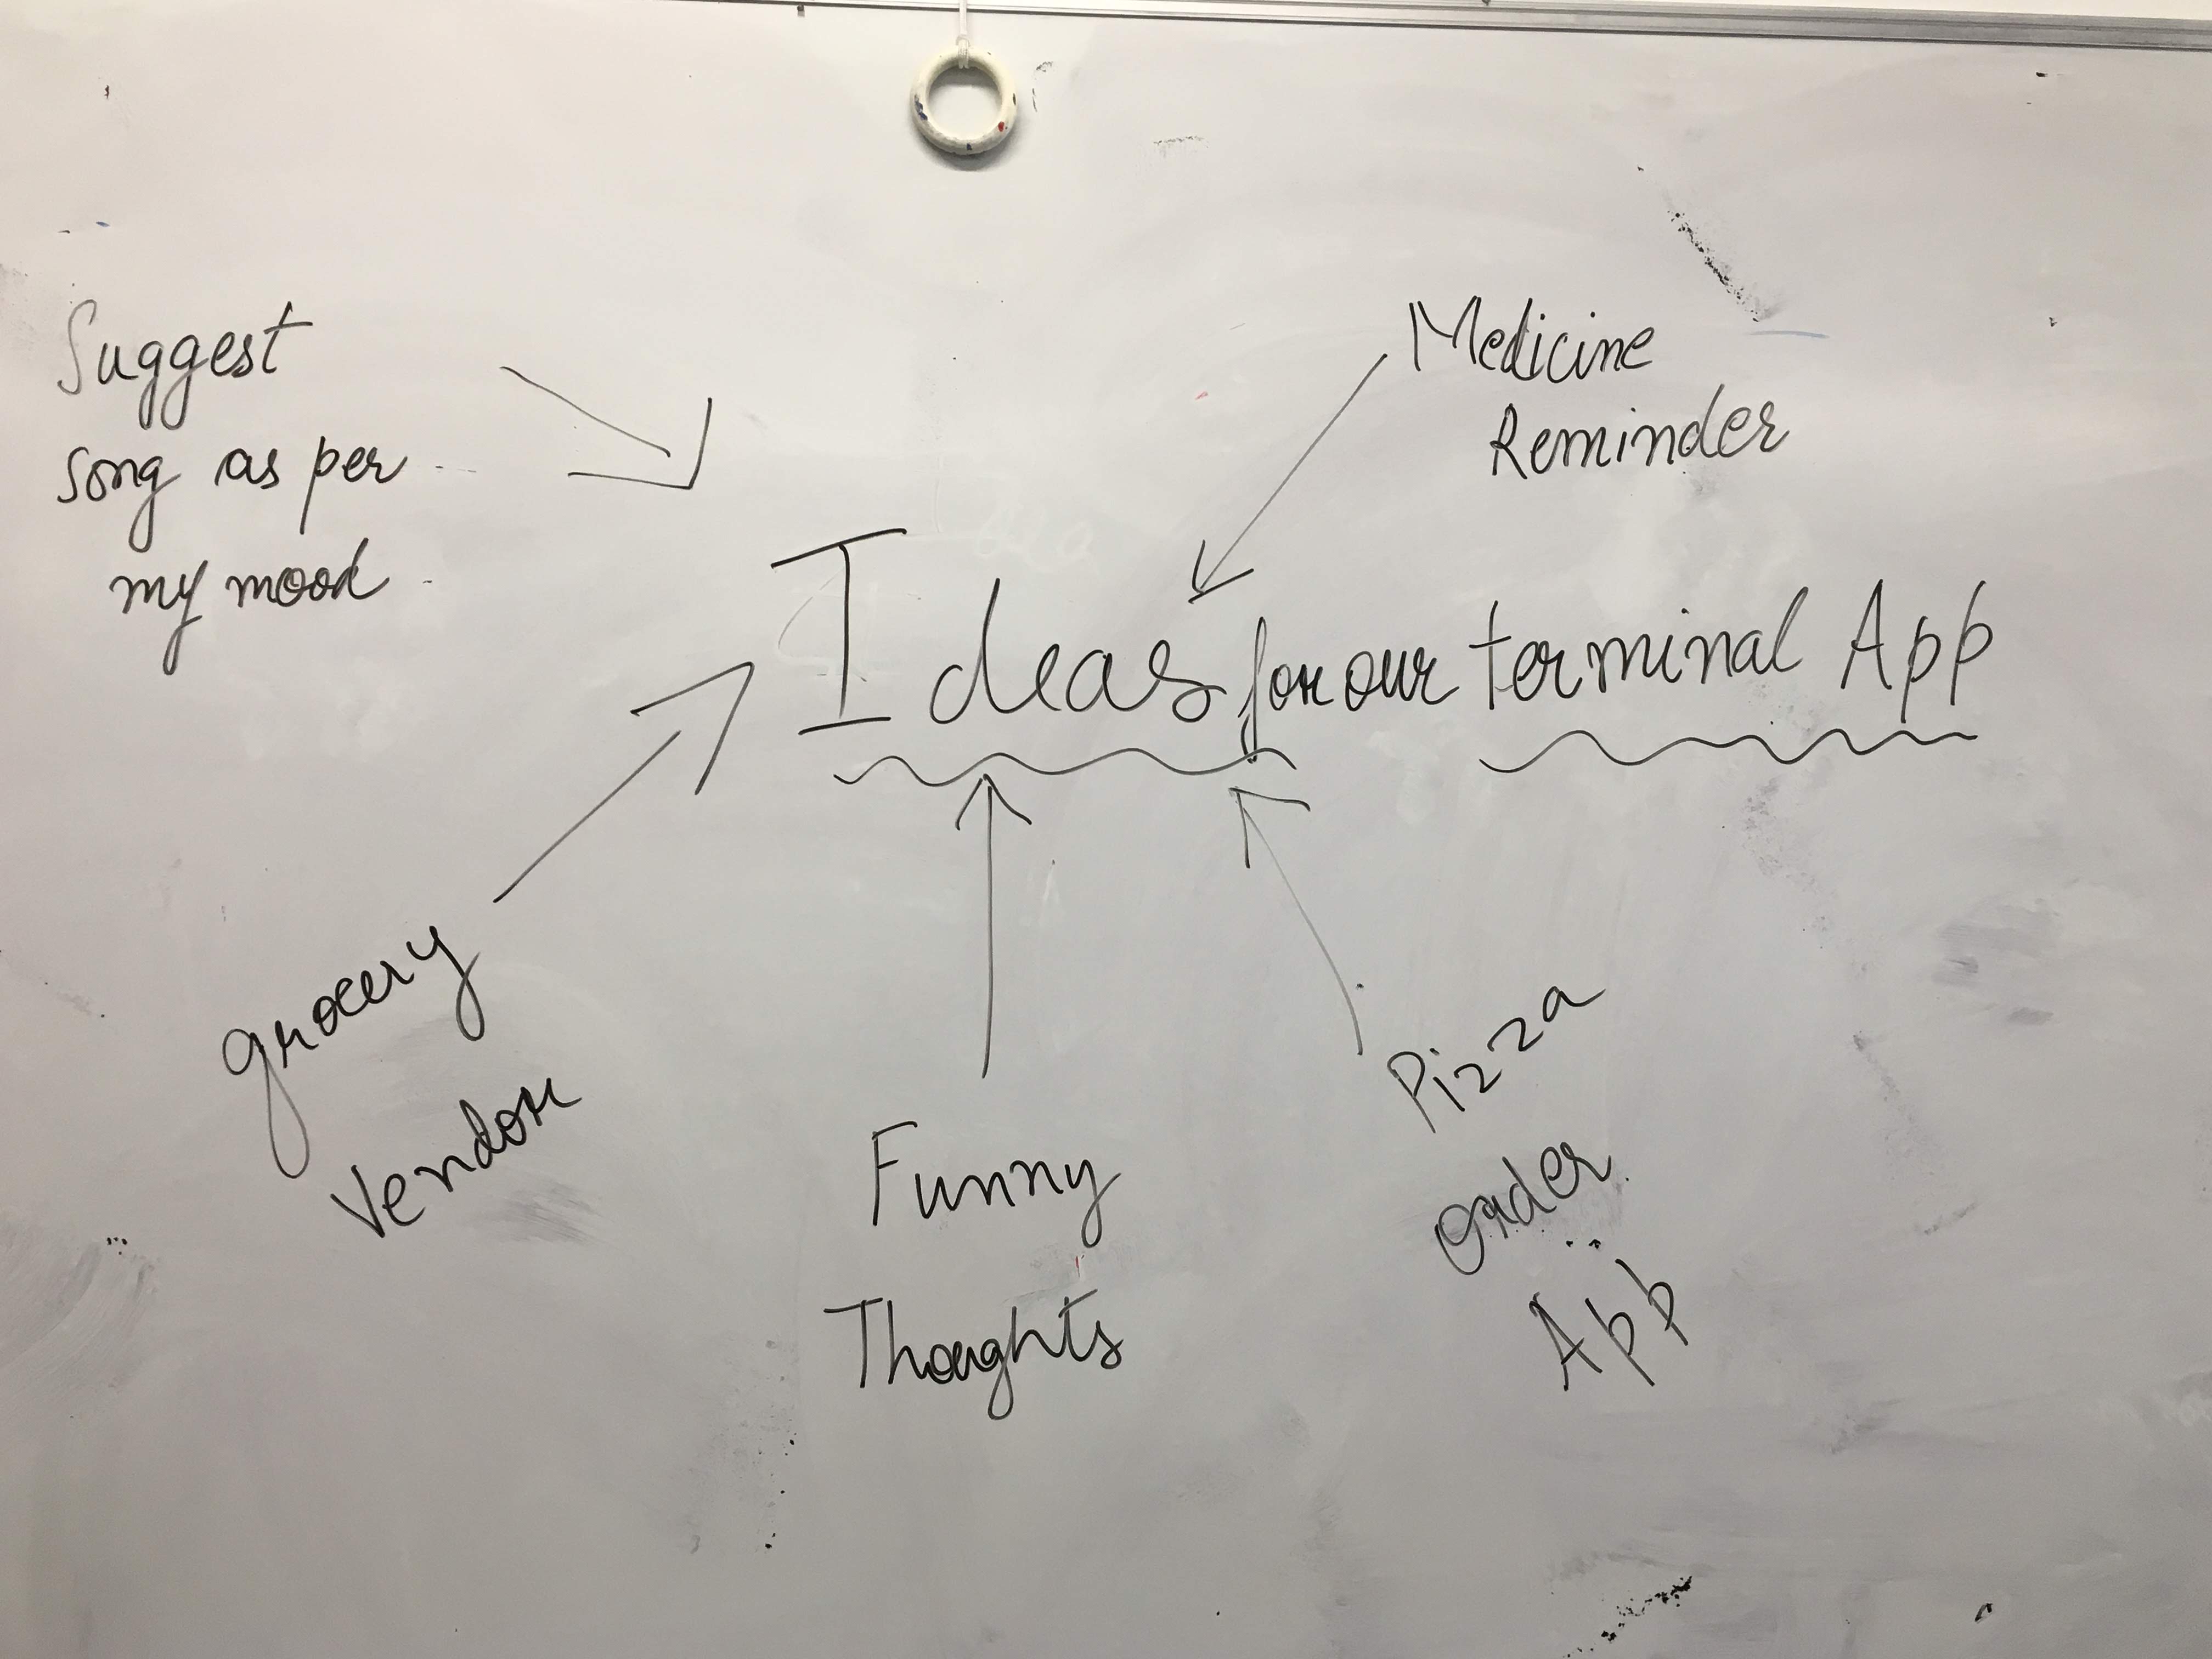 Suggest
song as per
my mood
Medicine
Reminder
Ideas for our terminal App
grocery
Vendor
Funny
Thoughts
Pizza
order
App